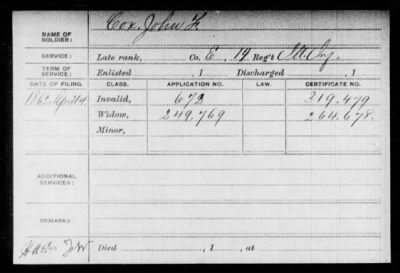 Cox, John F.
NAME OF SOLDIER:
SERVICE: Late rank, Co. E, 14 Reg't Ill. Inf.
TERM OF SERVICE: Enlisted , 1 Discharged , 1
DATE OF FILING. CLASS. APPLICATION NO. LAW. CERTIFICATE NO.
1862 April 4 Invalid, 672 319,479
Widow, 249,769 264,678
Minor,
ADDITIONAL SERVICES:
REMARKS:
Died , 1 , at